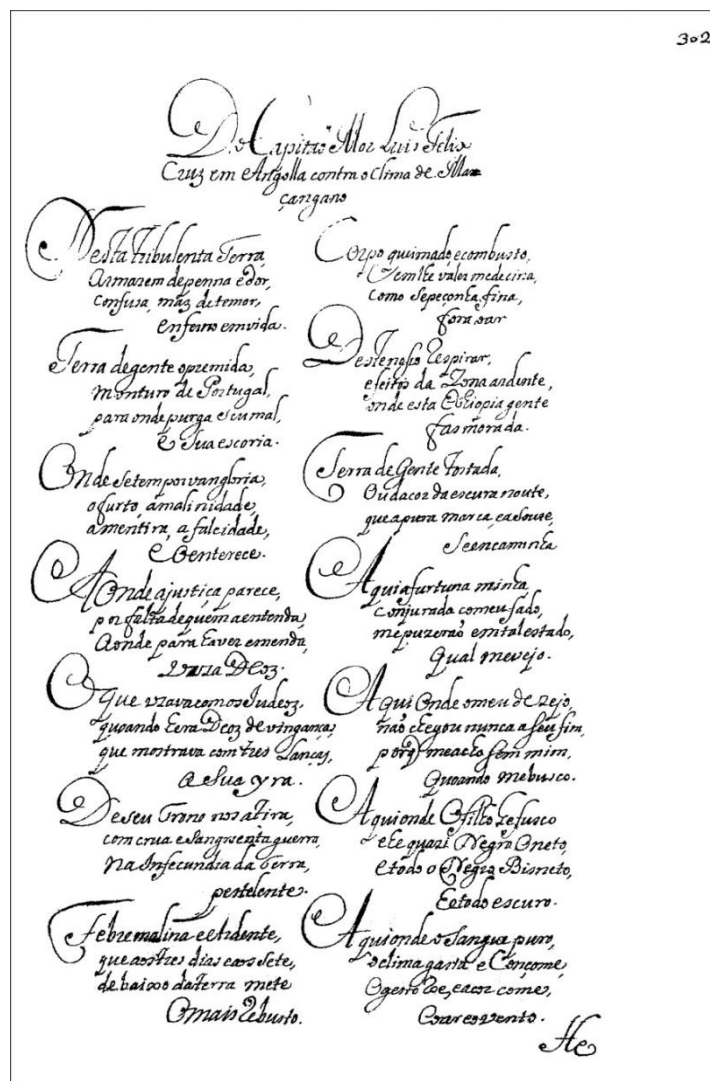 302
Do Capitaõ Mor Luis Felis
Cruz em Angolla contra o clima de Ma
çangano
Nesta tribulenta Terra
armazem de penna e dor,
confusa, maz de temor,
enferno em vida.
Terra de gente opremida,
monturo de Portugal,
para onde purga seu mal,
e Sua escoria.
Onde se tem por vangloria,
o furto, a malinidade,
a mentira, a falcidade,
e
Aonde a justiça parece,
por falta de quem a entenda,
Aonde para haver emenda,
Deoz.
O que uzava com os Judeoz,
quoando hera Deoz de vingança,
que mostrava com tres Lanças,
a Sua yra.
De seu Trono nos atira,
com crua e Sangrenta guerra,
na Infecundia da terra,
pestelente.
Febre malina e Ardente,
que aos tres dias e aos Sete,
debaixo da terra mete
O mais Rebusto.
Corpo queimado e combusto,
Sem lhe valer medecina,
como Se peçonha fina,
fora o ar
Deste nosso Respirar,
efeitos da Zona ardente,
onde esta Etiopia gente
fas morada.
Terra de Gente tostada,
Ou da cor da escura noute,
que a pura marca, e asoute,
Se encaminha
Aqui a furtuna minha
conjurada com meu fado,
me puzeraõ em tal estado,
Qual me vejo.
Aqui Onde o meu dezejo
naõ chegou nunca a Seu fim,
porq me acho Sem mim,
Quoando me busco.
Aqui onde O filho he fusco
e he quazi Negro O neto,
e todo o Negro Bisneto,
E todo escuro.
Aqui onde o Sangue puro,
o clima gasta e Conçome,
O gesto Roe, e a cor come,
O ar e o vento.
He